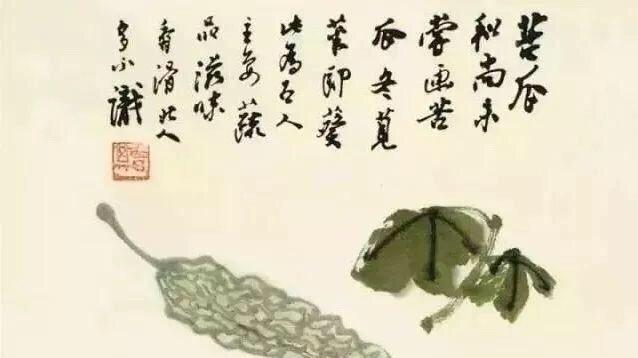 苦瓜
和尚未
嘗画苦
瓜冬莧
菜即葵
此為古人
主要蔬
品滋味
香滑北人
多不識